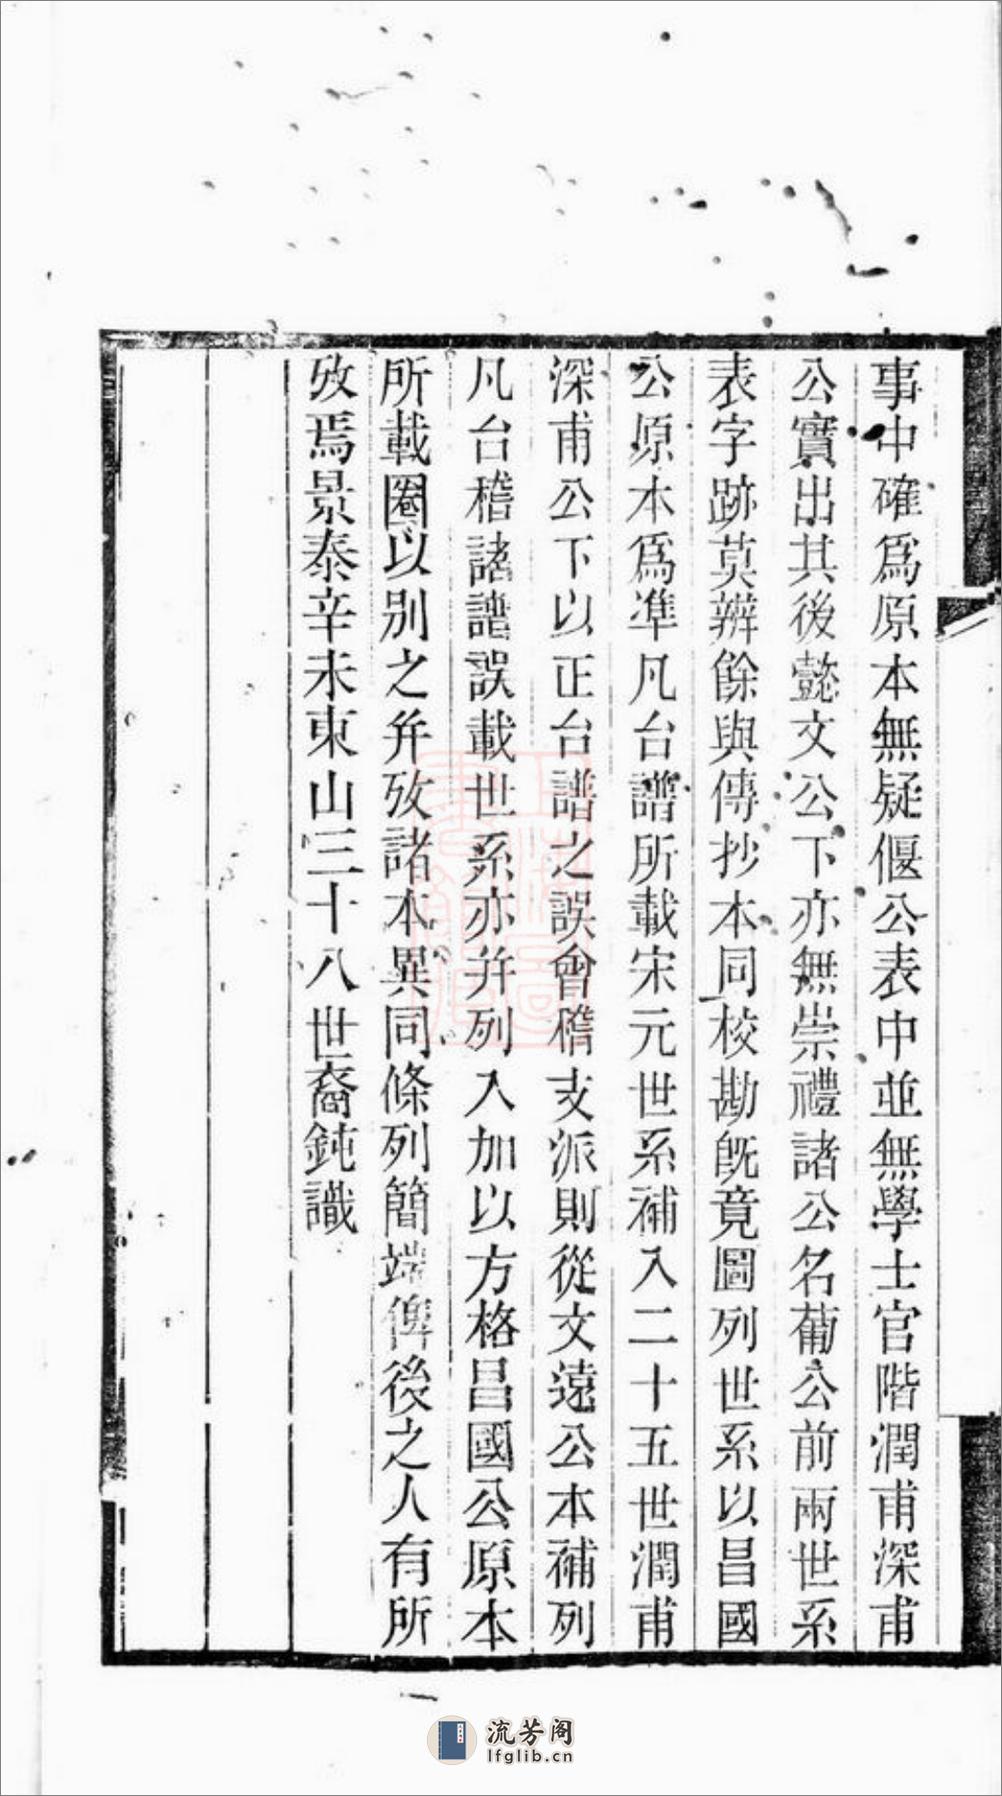 事中確爲原本無疑偃公表中並無學士官階潤甫深甫
公實出其後懿文公下亦無崇禮諸公名葡公前兩世系
表字跡莫辨餘與傳抄本同校勘旣竟圖列世系以昌國
公原本爲準凡台譜所載宋元世系補入二十五世潤甫
深甫公下以正台譜之誤會稽支派則從文遠公本補列
凡台稽諸譜誤載世系亦并列入加以方格昌國公原本
所載圈以别之并攷諸本異同條列簡端俾後之人有所
攷焉景泰辛未東山三十八世裔鈍識
流芳阁
lfglib.cn